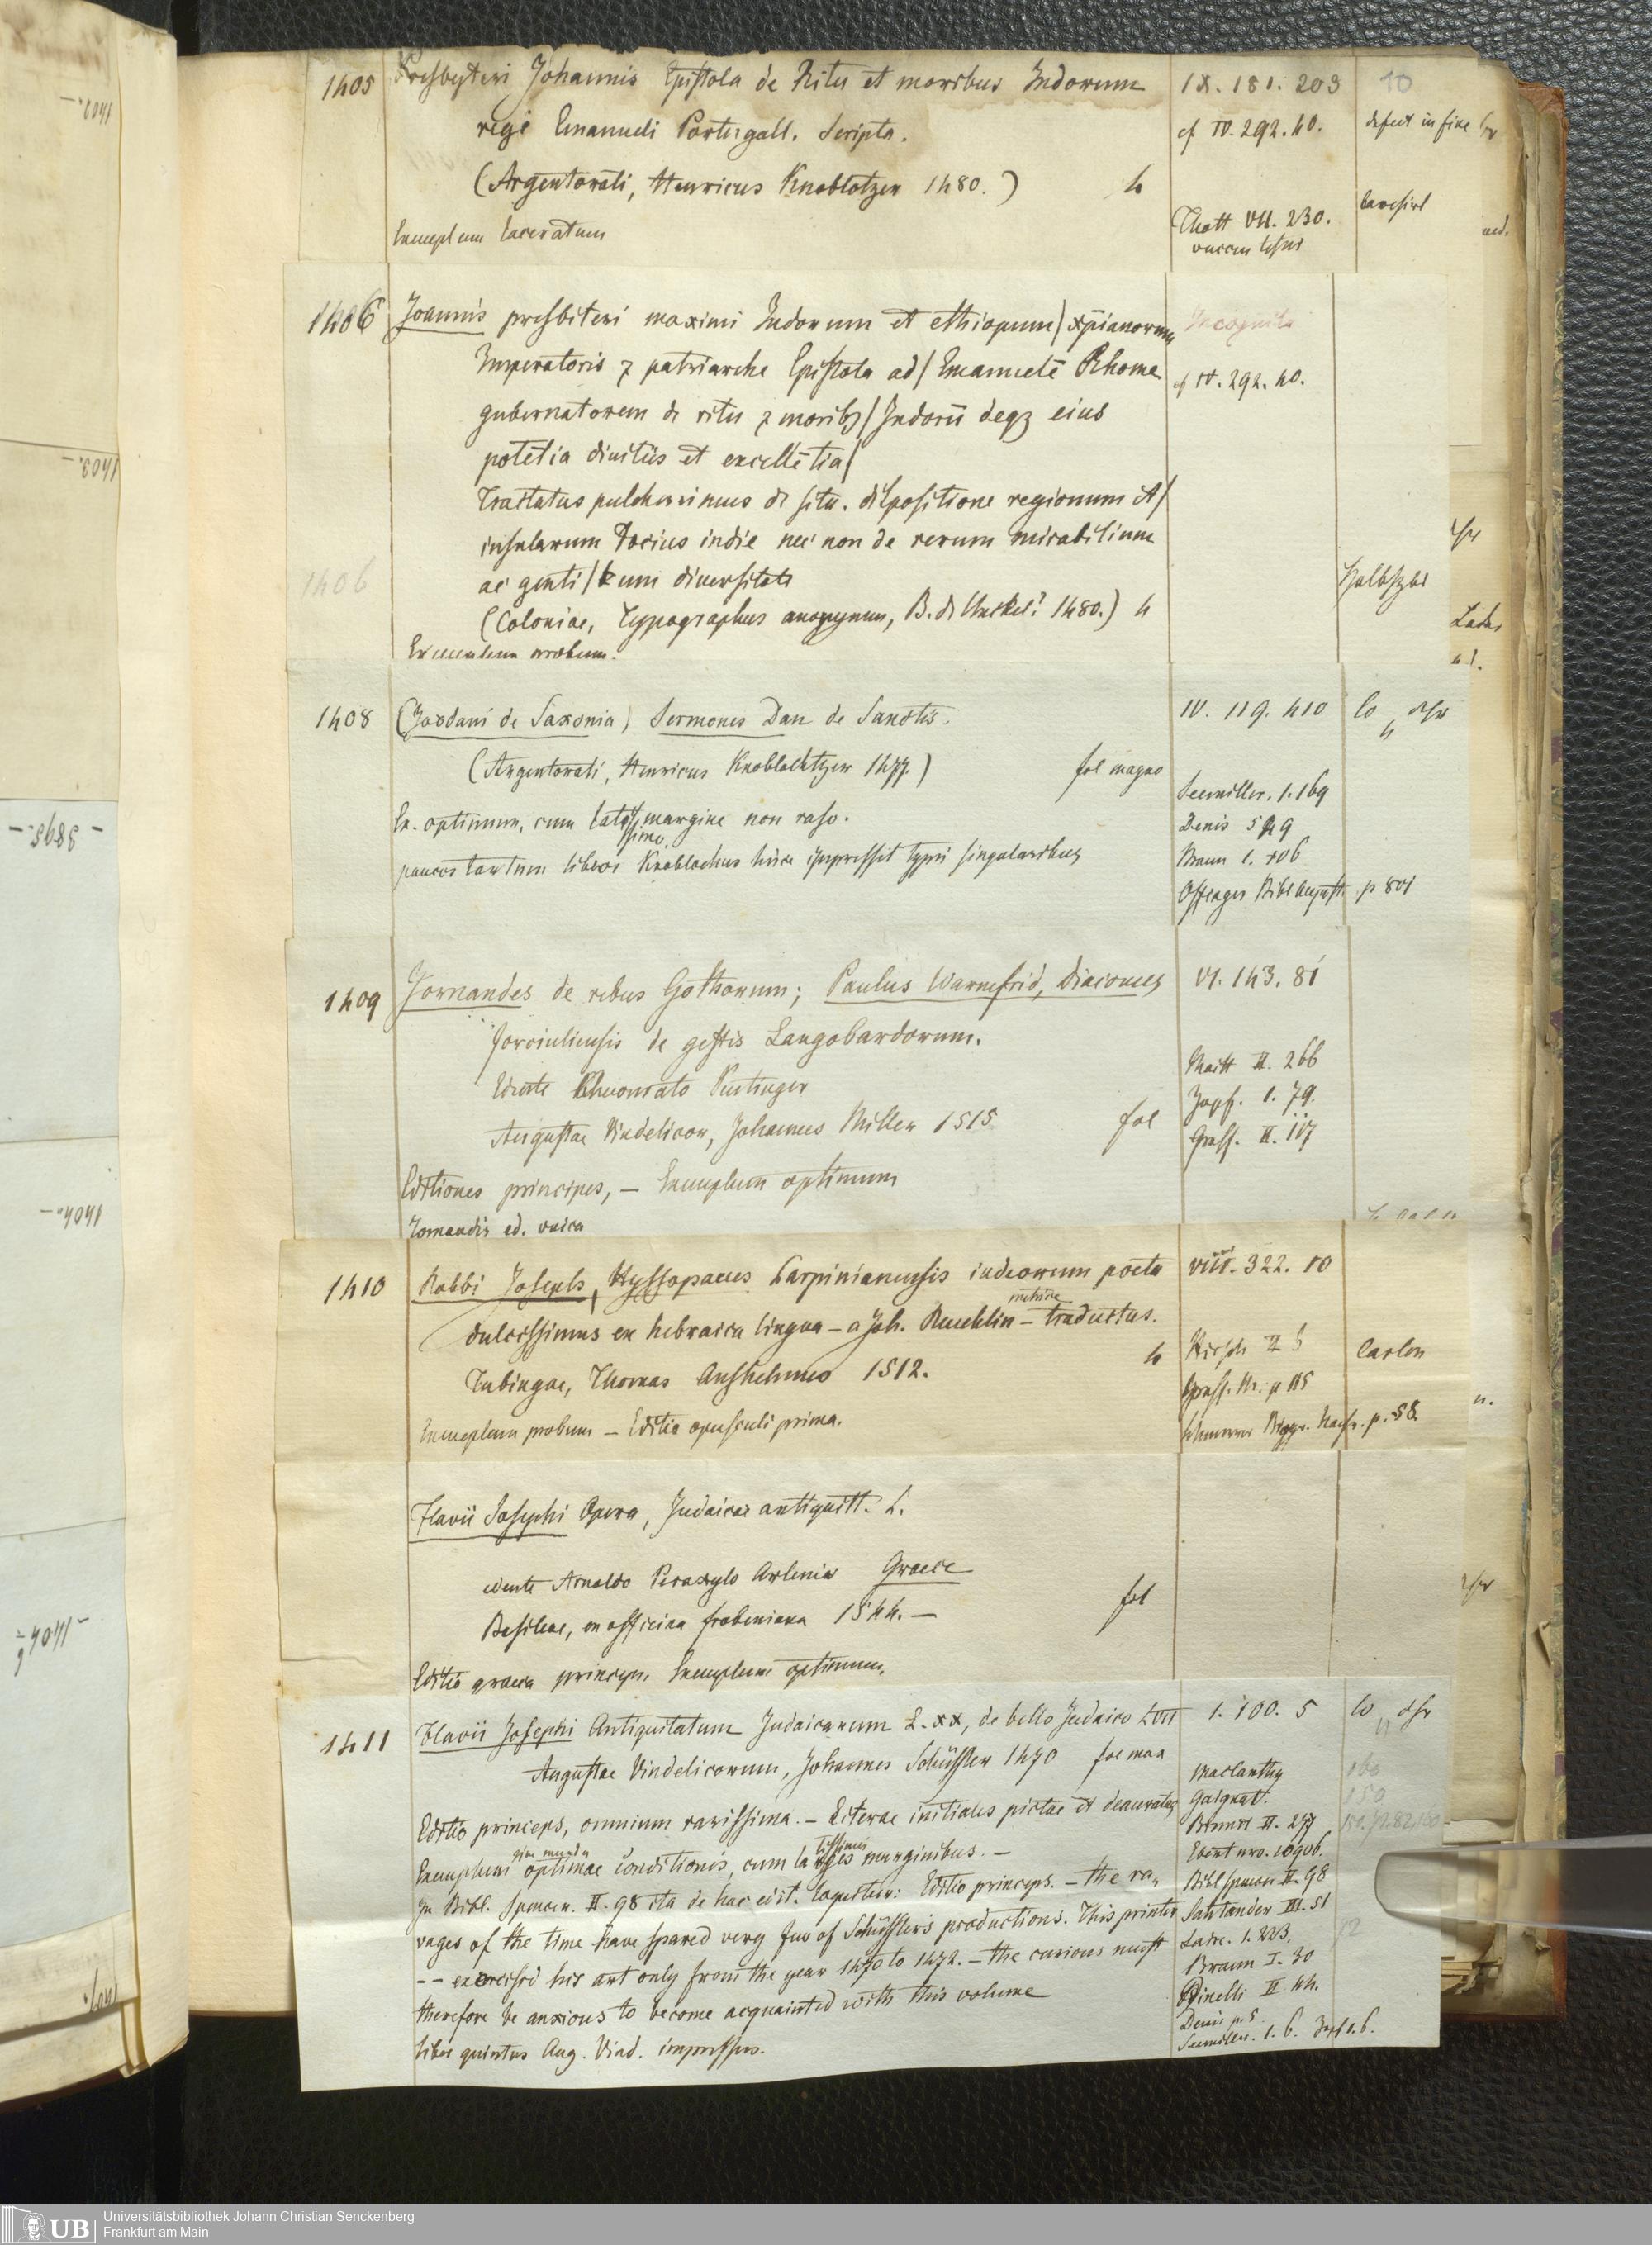 1405 Presbyteri Johannis Epistola de Ritu et moribus Indorum IX. 181. 203 10
regi Emanueli Portugall. scripta. cf IV. 292. 40. defect in fine
(Argentorati, Henricus Knoblotzer 1480.) 4
Exemplum laceratum Thott VII. 230.
1406 Joannis presbiteri maximi Indorum et ethiopum/ xpianorum Incognita
Imperatoris z patriarche Epistola ad/ Emanuelē Rhome cf IV. 292. 40.
gubernatorem de ritu z moribz/ Indorū deqz eius
potētia diuitiis et excellētia/
Tractatus pulcherrimus de situ. dispositione regionum et/
insularum tocius indie nec non de rerum mirabilium
1406 ac genti/um diuersitate Halbfzbd
(Coloniae, Typographus anonymus, B. de Unckel? 1480.) 4
Exemplum probum.
1408 (Jordani de Saxonia) Sermones Dan de Sanctis. IV. 119. 410
(Argentorati, Henricus Knoblochtzer 1477) fol magno
Seemiller. 1. 169
Ex. optimum, cum latissimo margine non raso.
Denis 549
paucos tantum libros Knoblochus hisce impressit typis singularibus Braun 1. 106
p 801
1409 Jornandes de rebus Gothorum; Paulus Warnefrid, Diaconus VI. 143. 81
foroiuliensis de gestis Langobardorum.
Edente Chuonrato Peutinger Maitt II. 266
Zapf. 1. 79.
Augustae Vindelicor, Johannes Miller 1515 fol
Editiones principes, — Exemplum optimum
Jornandis ed. unica
1410 Rabbi Joseph Hyssopaeus Parpinianensis iudaeorum poeta VIII. 322. 10
dulcissimus ex hebraica lingua – a Joh. Reuchlin – traductus.
Tubingae, Thomas Anshelmus 1512. 4 Hirsch II Carton
Exemplum probum — Editio opusculi prima. p. 58.
Flavii Josephi Opera, Judaicae antiquitt. L.
edente Arnoldo Peraxylo Arlenio Graece
Basileae, ex officina frobeniana 1544. — fol
Editio graeca princeps. Exemplum optimum.
1411 Flavii Josephi Antiquitatum Judaicarum L. XX, de bello Judaico L VII 1. 100. 5
Augustae Vindelicorum, Johannes Schüssler 1470 fol max
Maclanthy 160
Editio princeps, omnium rarissima. — Literae initiales pictae et deauratae Gaignat. 150
Brunet II. 277
Exemplum optimae conditionis, cum largis marginibus. — Ebert nro. 10906.
In Bibl. Spencer. II. 98 ita de hac edit. loquitur: Editio princeps. — the ra„ Bibl Spencer II. 98
vages of the time have spared very few of Schüssler's productions. This printer Santander III. 51
-- exercised his art only from the year 1470 to 1472. — the curious must Laire. 1. 223.
Braun I. 30
therefore be anxious to become acquainted with this volume Pinelli II 44.
Denis p. 5
liber quintus Aug. Vind. impressus. Seemiller. 1. 6. Zapf 1. 6.
UB Universitätsbibliothek Johann Christian Senckenberg
Frankfurt am Main